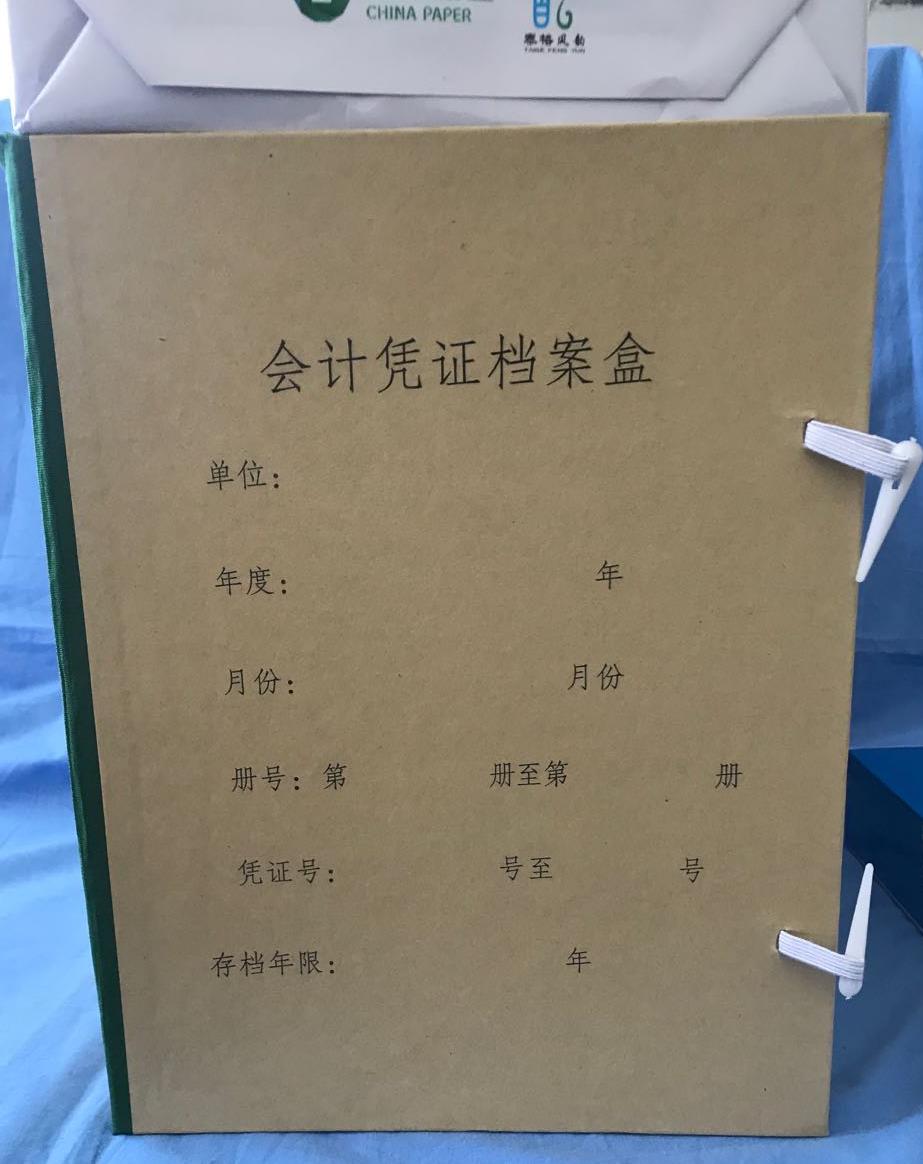 CHINA PAPER
泰格风韵
TAIGE FENG YUN
会计凭证档案盒
单位:
年度: 年
月份: 月份
册号: 第 册至第 册
凭证号: 号至 号
存档年限: 年